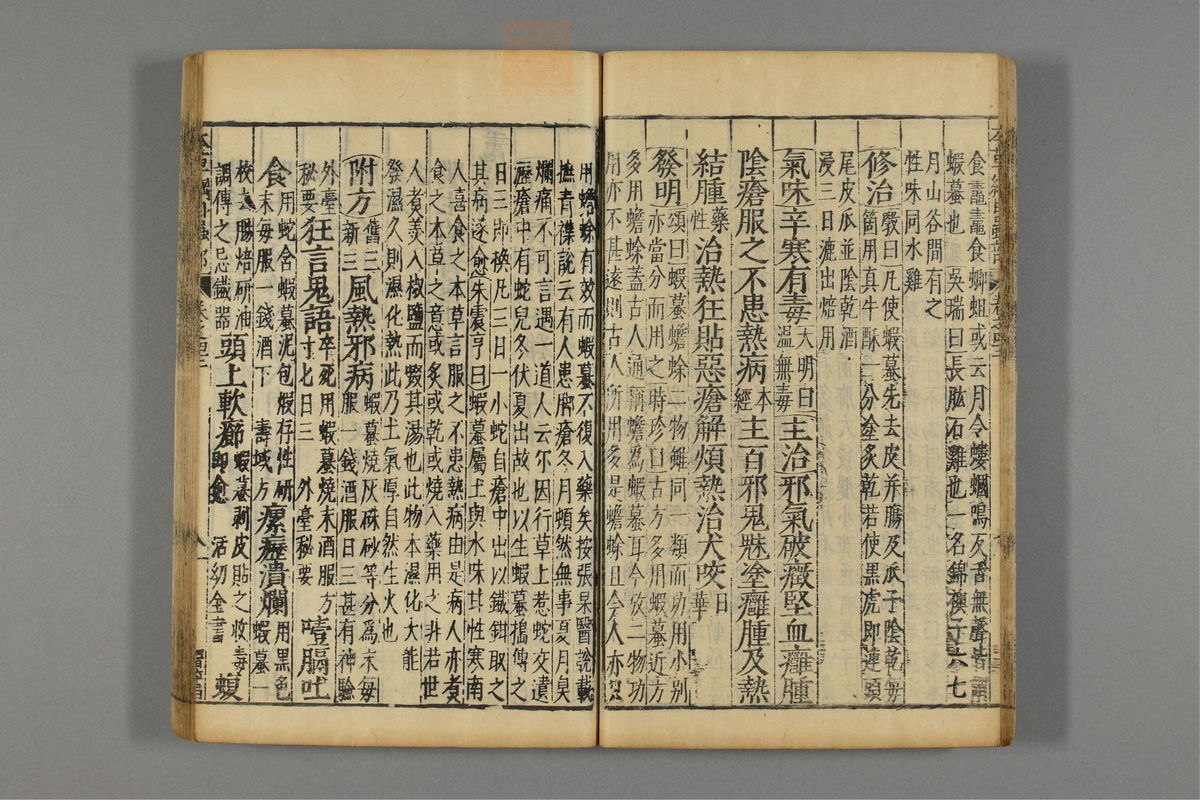 食蠹蠹食蝍蛆或云月令螻蟈鳴反舌無聲皆謂
蝦蟇也 吳瑞曰長肱石雞也一名錦襖子六七
月山谷間有之
性味同水雞
修治 斆曰凡使蝦蟇先去皮并腸及爪子陰乾每
箇用真牛酥一分塗炙乾若使黑虎即連頭
尾皮爪並陰乾酒
浸三日漉出焙用
氣味辛寒有毒 大明曰溫無毒 主治邪氣破癥堅血癰腫
陰瘡服之不患熱病 本經 主百邪鬼魅塗癰腫及熱
結腫 藥性 治熱狂貼惡瘡解煩熱治犬咬 日華
發明 頌曰蝦蟇蟾蜍二物雖同一類而功用小別
亦當分而用之時珍曰古方多用蝦蟇近方
多用蟾蜍蓋古人通稱蟾為蝦蟇耳今攷二物功
用亦不甚遠則古人所用多是蟾蜍且今人亦只
用蟾蜍有效而蝦蟇不復入藥矣按張杲醫說載
摭青襍說云有人患脚瘡冬月頓然無事夏月臭
爛痛不可言遇一道人云尔因行草上惹蛇交遺
瀝瘡中有蛇兒冬伏夏出故也以生蝦蟇搗傅之
日三即換凡三日一小蛇自瘡中出以鐵鉗取之
其病遂愈朱震亨曰蝦蟇屬土與水味甘性寒南
人喜食之本草言服之不患熱病由是病人亦煮
食之本草之意或炙或乾或燒入藥用之非若世
人煮羹入椒鹽而啜其湯也此物本濕化大能
發濕久則濕化熱此乃土氣厚自然生火也
附方 舊三新三 風熱邪病 蝦蟇燒灰麻砂等分為末每
服一錢酒服日三甚有神驗
外臺秘要 狂言鬼語 卒死用蝦蟇燒末酒服方寸匕日三 外臺秘要 噎膈吐
食 用蛇含蝦蟇泥包煅存性研末每服一錢酒下 壽域方 瘰癧潰爛 用黑色蝦蟇一
枚去腸焙研油調傅之忌鐵器 頭上軟癤 蝦蟇剥皮貼之收毒即愈 活幼全書 蝮